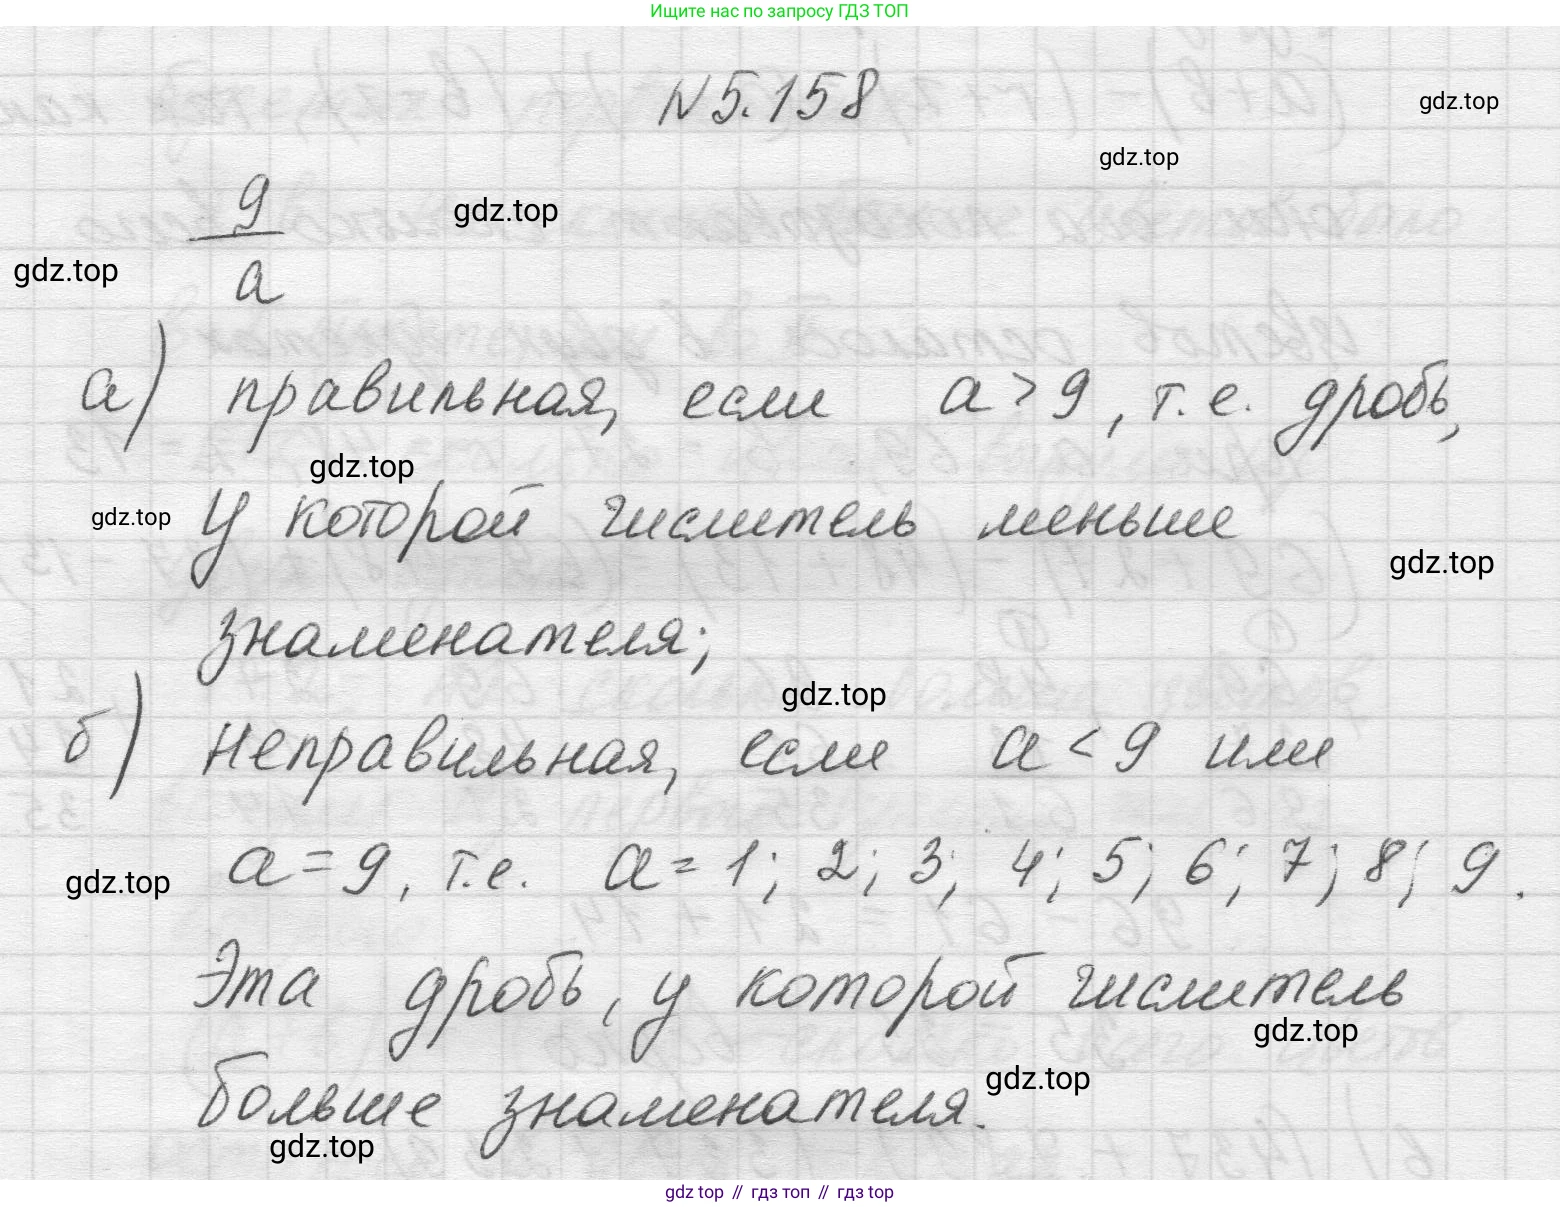 Ищите нас по запросу ГДЗ ТОП
N 5.158
gdz.top
gdz.top
9
gdz.top
gdz.top
a
а) правильная, если a > 9, т.е. дробь,
gdz.top
gdz.top
у которой числитель меньше
gdz.top
знаменателя;
gdz.top
б) неправильная, если a < 9 или
gdz.top
a = 9, т.е. a = 1; 2; 3; 4; 5; 6; 7; 8; 9.
Эта дробь, у которой числитель
gdz.top
больше знаменателя.
gdz.top
gdz.top
gdz top // гдз топ // гдз top